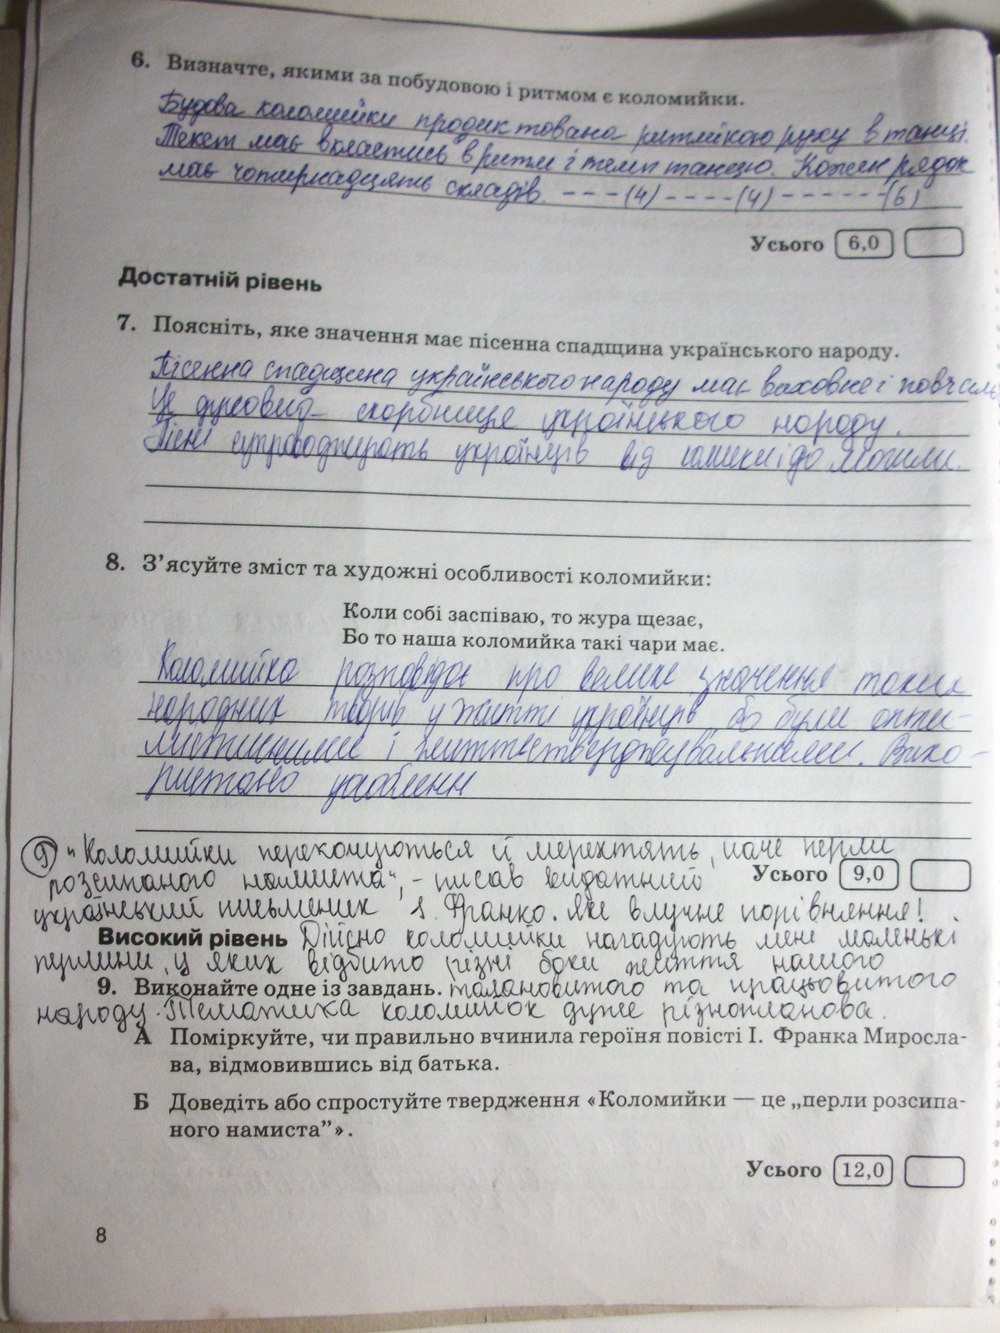 6. Визначте, якими за побудовою і ритмом є коломийки.
Будова коломийки продиктована ритмікою руху в танці.
Текст має вкластись в ритм і темп танцю. Кожен рядок
має чотирнадцять складів. – – – (4) – – – – (4) – – – – – – (6)
Усього 6,0
Достатній рівень
7. Поясніть, яке значення має пісенна спадщина українського народу.
Пісенна спадщина українського народу має виховне і повчаль
Це духовна скарбниця українського народу.
Пісні супроводжують українців від колиски і до могили.
8. З’ясуйте зміст та художні особливості коломийки:
Коли собі заспіваю, то жура щезає,
Бо то наша коломийка такі чари має.
Коломийка розповідає про велике значення таких
народних творів у житті українців, бо були опти-
містичними і життєстверджувальними. Вико-
ристано уособлення
9) "Коломийки перекочуються й мерехтять, наче перли
розсипаного намиста", – писав видатний
Усього 9,0
український письменик І. Франко. Яке влучне порівняння!
Високий рівень
Дійсно коломийки нагадують мені маленькі
перлини, у яких відбито різні боки життя нашого
9. Виконайте одне із завдань.
талановитого та працьовитого
народу. Тематика коломийок дуже різнопланова.
А Поміркуйте, чи правильно вчинила героїня повісті І. Франка Миросла-
ва, відмовившись від батька.
Б Доведіть або спростуйте твердження «Коломийки — це „перли розсипа-
ного намиста”».
Усього 12,0
8